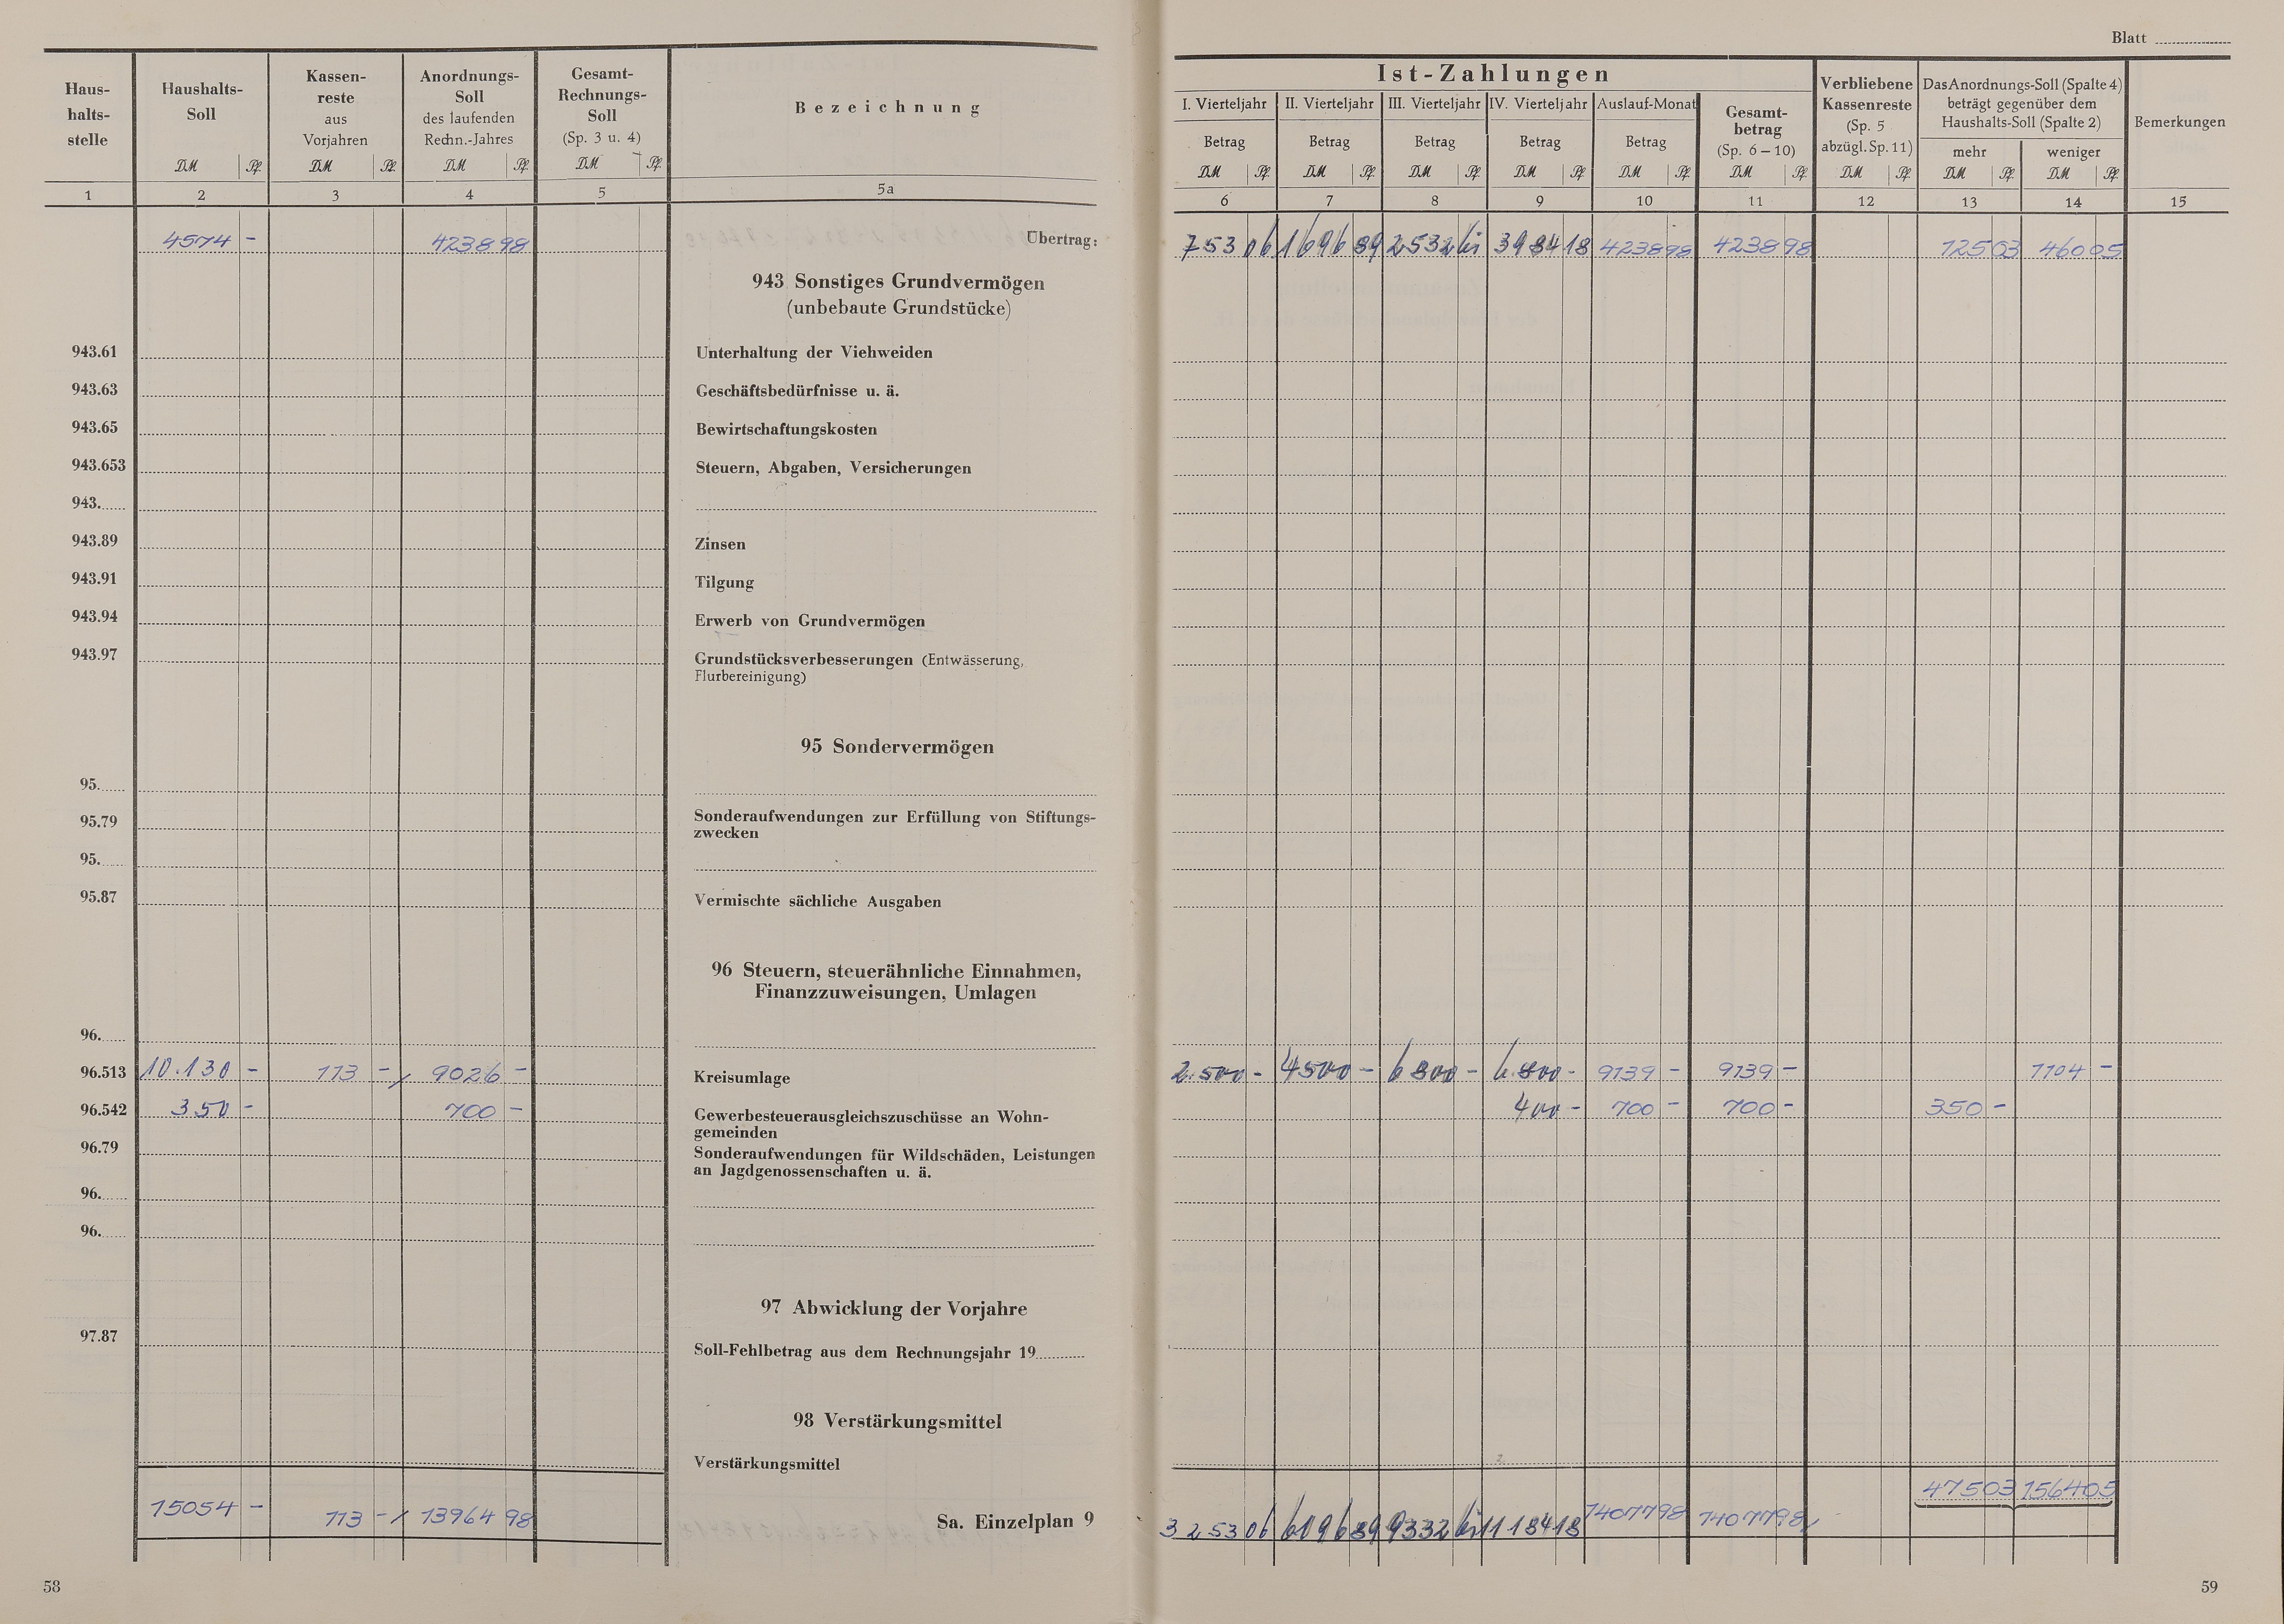 Blatt
Haus-
halts-
stelle
Haushalts-
Soll
DM Pf.
Kassen-
reste
aus
Vorjahren
DM Pf.
Anordnungs-
Soll
des laufenden
Rechn.-Jahres
DM Pf.
Gesamt-
Rechnungs-
Soll
(Sp. 3 u. 4)
DM Pf.
Bezeichnung
Ist-Zahlungen
I. Vierteljahr II. Vierteljahr III. Vierteljahr IV. Vierteljahr Auslauf-Monat
Betrag Betrag Betrag Betrag Betrag
DM Pf. DM Pf. DM Pf. DM Pf. DM Pf.
Gesamt-
betrag
(Sp. 6 – 10)
DM Pf.
Verbliebene
Kassenreste
(Sp. 5
abzügl. Sp. 11)
DM Pf.
Das Anordnungs-Soll (Spalte 4)
beträgt gegenüber dem
Haushalts-Soll (Spalte 2)
mehr weniger
DM Pf. DM Pf.
Bemerkungen
1 2 3 4 5 5a 6 7 8 9 10 11 12 13 14 15
4574 - 4238 98 Übertrag: 753 06 1696 89 2532 3984 18 4238 98 4238 98 125 03 460 05
943 Sonstiges Grundvermögen
(unbebaute Grundstücke)
943.61 Unterhaltung der Viehweiden
943.63 Geschäftsbedürfnisse u. ä.
943.65 Bewirtschaftungskosten
943.653 Steuern, Abgaben, Versicherungen
943.
943.89 Zinsen
943.91 Tilgung
943.94 Erwerb von Grundvermögen
943.97 Grundstücksverbesserungen (Entwässerung,
Flurbereinigung)
95 Sondervermögen
95.
95.79 Sonderaufwendungen zur Erfüllung von Stiftungs-
zwecken
95.
95.87 Vermischte sächliche Ausgaben
96 Steuern, steuerähnliche Einnahmen,
Finanzzuweisungen, Umlagen
96.
96.513 10.130 - 113 - 9026 - Kreisumlage 2.500 - 4500 - 6800 - 6.800 - 9139 - 9139 - 1104 -
96.542 350 - 700 - Gewerbesteuerausgleichszuschüsse an Wohn-
gemeinden 400 - 700 - 700 - 350 -
96.79 Sonderaufwendungen für Wildschäden, Leistungen
an Jagdgenossenschaften u. ä.
96.
96.
97 Abwicklung der Vorjahre
97.87 Soll-Fehlbetrag aus dem Rechnungsjahr 19
98 Verstärkungsmittel
Verstärkungsmittel
475 03 1564 05
15054 - 113 - 13964 98 Sa. Einzelplan 9 3253 06 6196 89 9332 11184 18 14077 98 14077 98
58 59